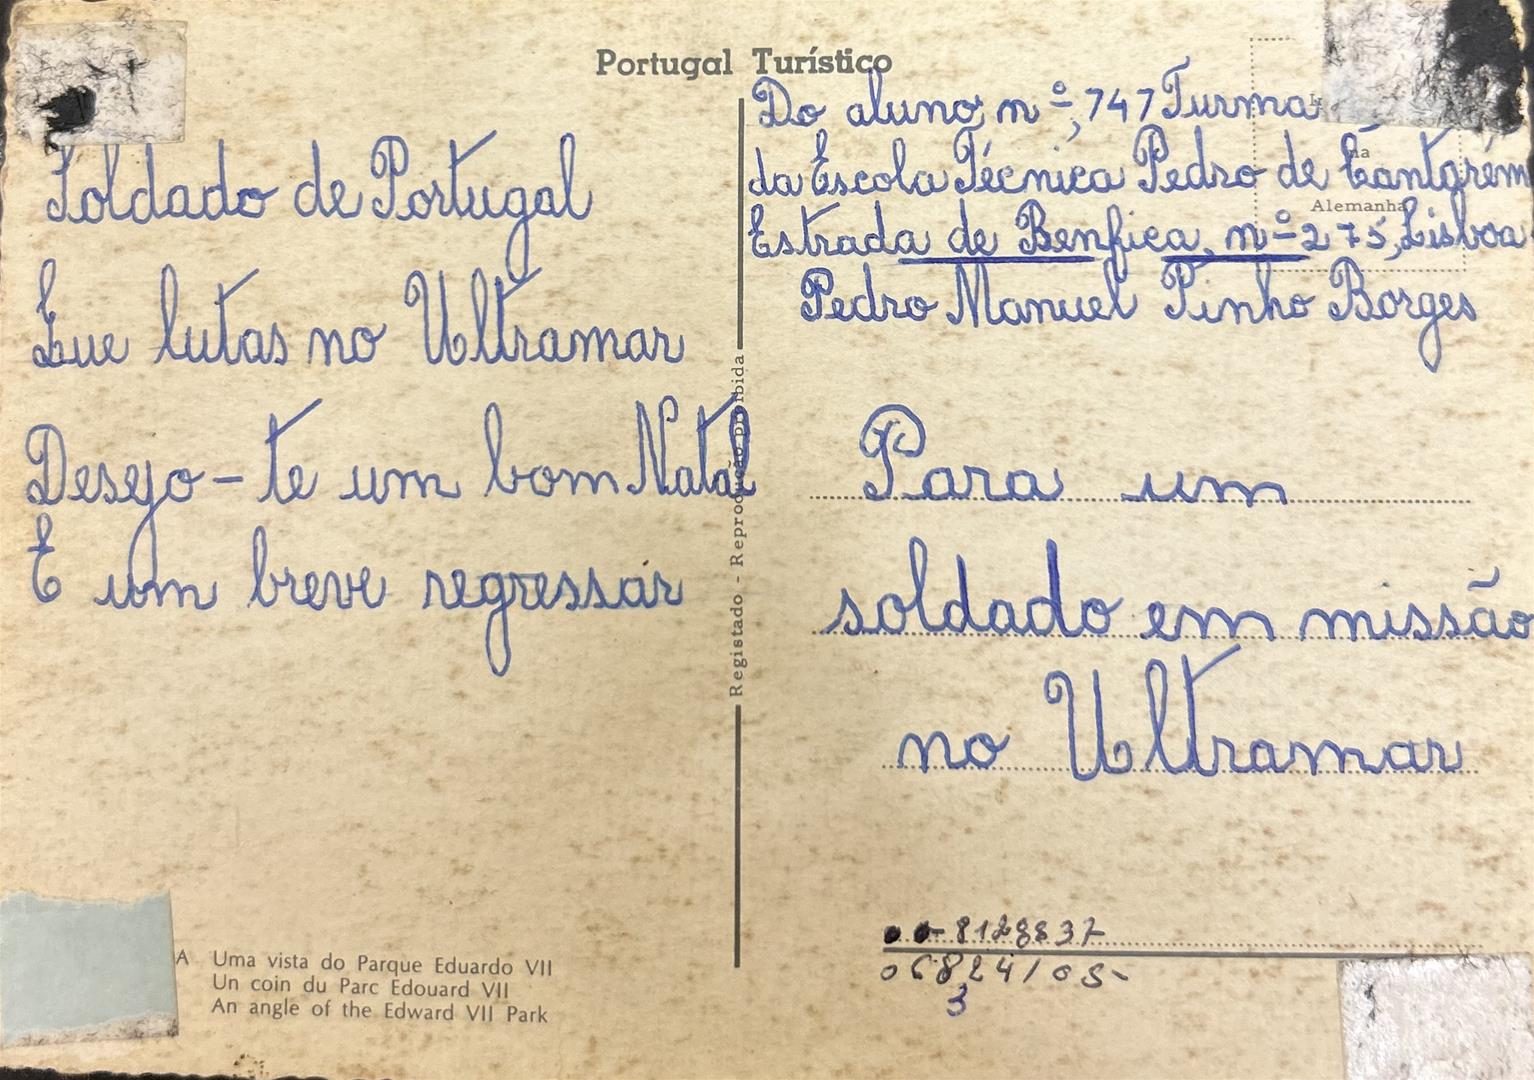 Portugal Turístico
Soldado de Portugal
Que lutas no Ultramar
Desejo-te um bom Natal
E um breve regressar
Do aluno, nº, 747 Turma
da Escola Técnica Pedro de Santarém
Estrada de Benfica, nº 275, Lisboa
Pedro Manuel Pinho Borges
na
Alemanha
Para um
soldado em missão
no Ultramar
Registado - Reprodução proibida
A Uma vista do Parque Eduardo VII
Un coin du Parc Edouard VII
An angle of the Edward VII Park
3